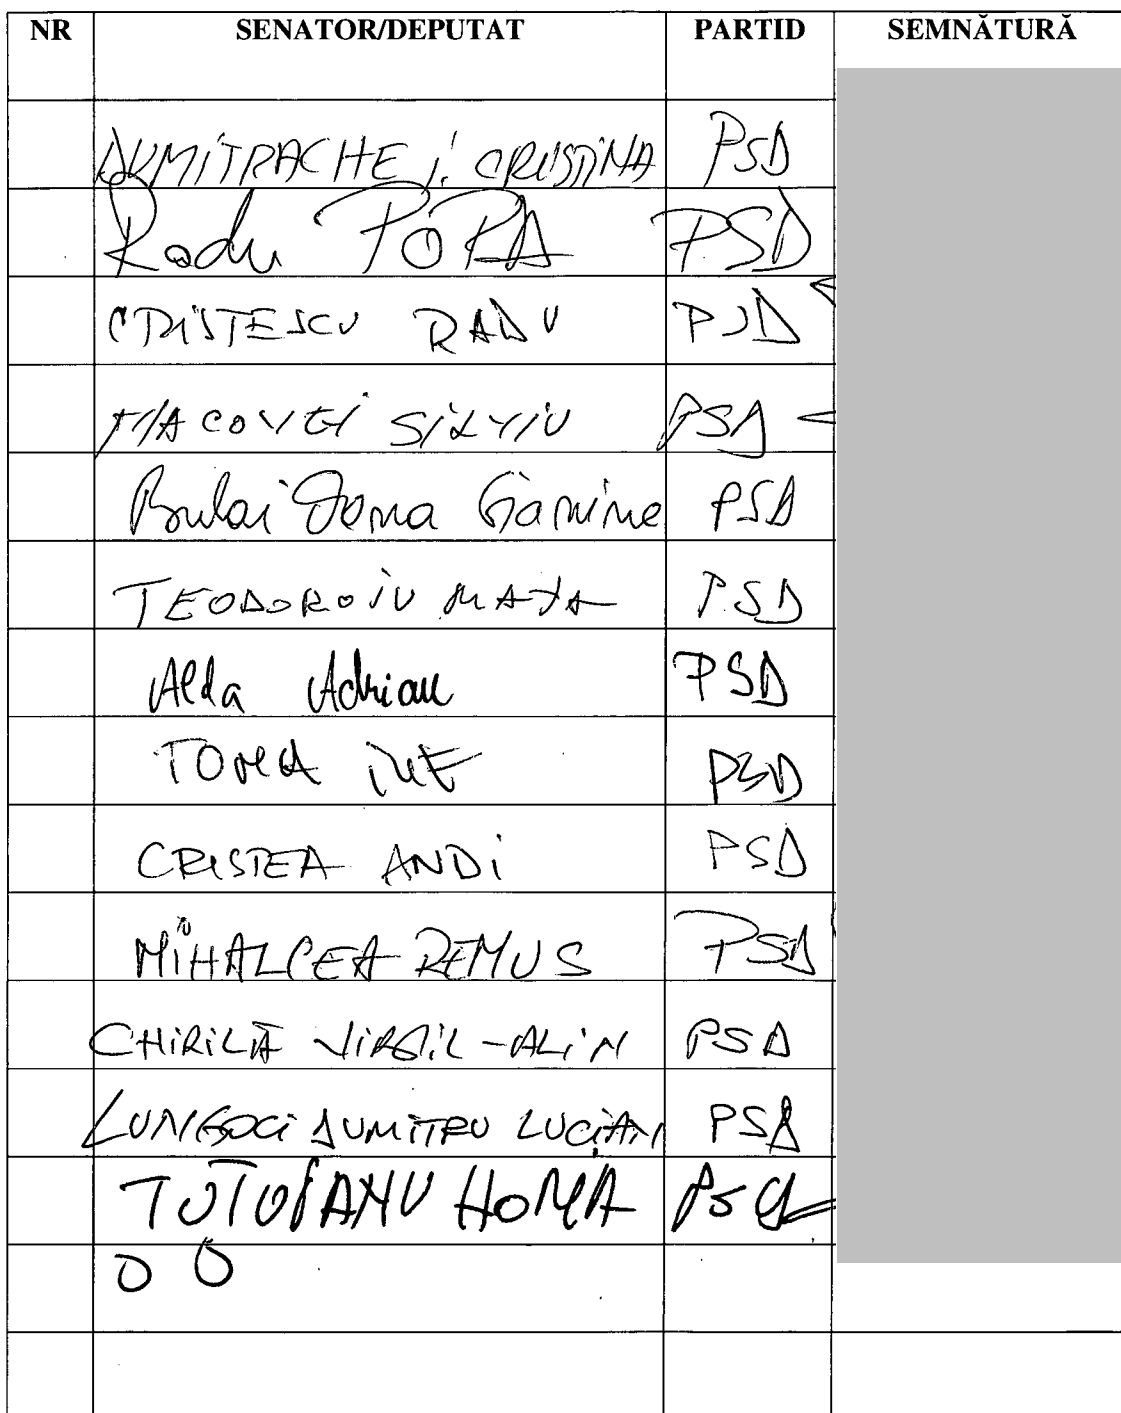 NR SENATOR/DEPUTAT PARTID SEMNĂTURĂ
DUMITRACHE I. CRISTINA PSD
Radu POPA PSD
CRISTESCU RADU PSD
MACOVEI SILVIU PSD
Bulai Doina Gianina PSD
TEODOROIU MAYA PSD
Alda Adrian PSD
TOMA ILIE PSD
CRISTEA ANDI PSD
MIHALCEA REMUS PSD
CHIRILĂ VIRGIL-ALIN PSD
LUNGOCI DUMITRU LUCIAN PSD
HOMA PSD